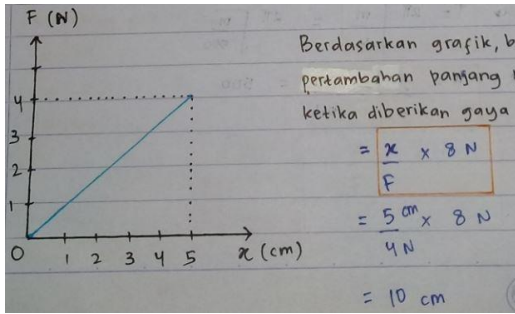 F (N)
4
3
2
1
0
1 2 3 4 5 x (cm)
Berdasarkan grafik, b
pertambahan panjang
ketika diberikan gaya
= x/F × 8 N
= 5 cm/4 N × 8 N
= 10 cm